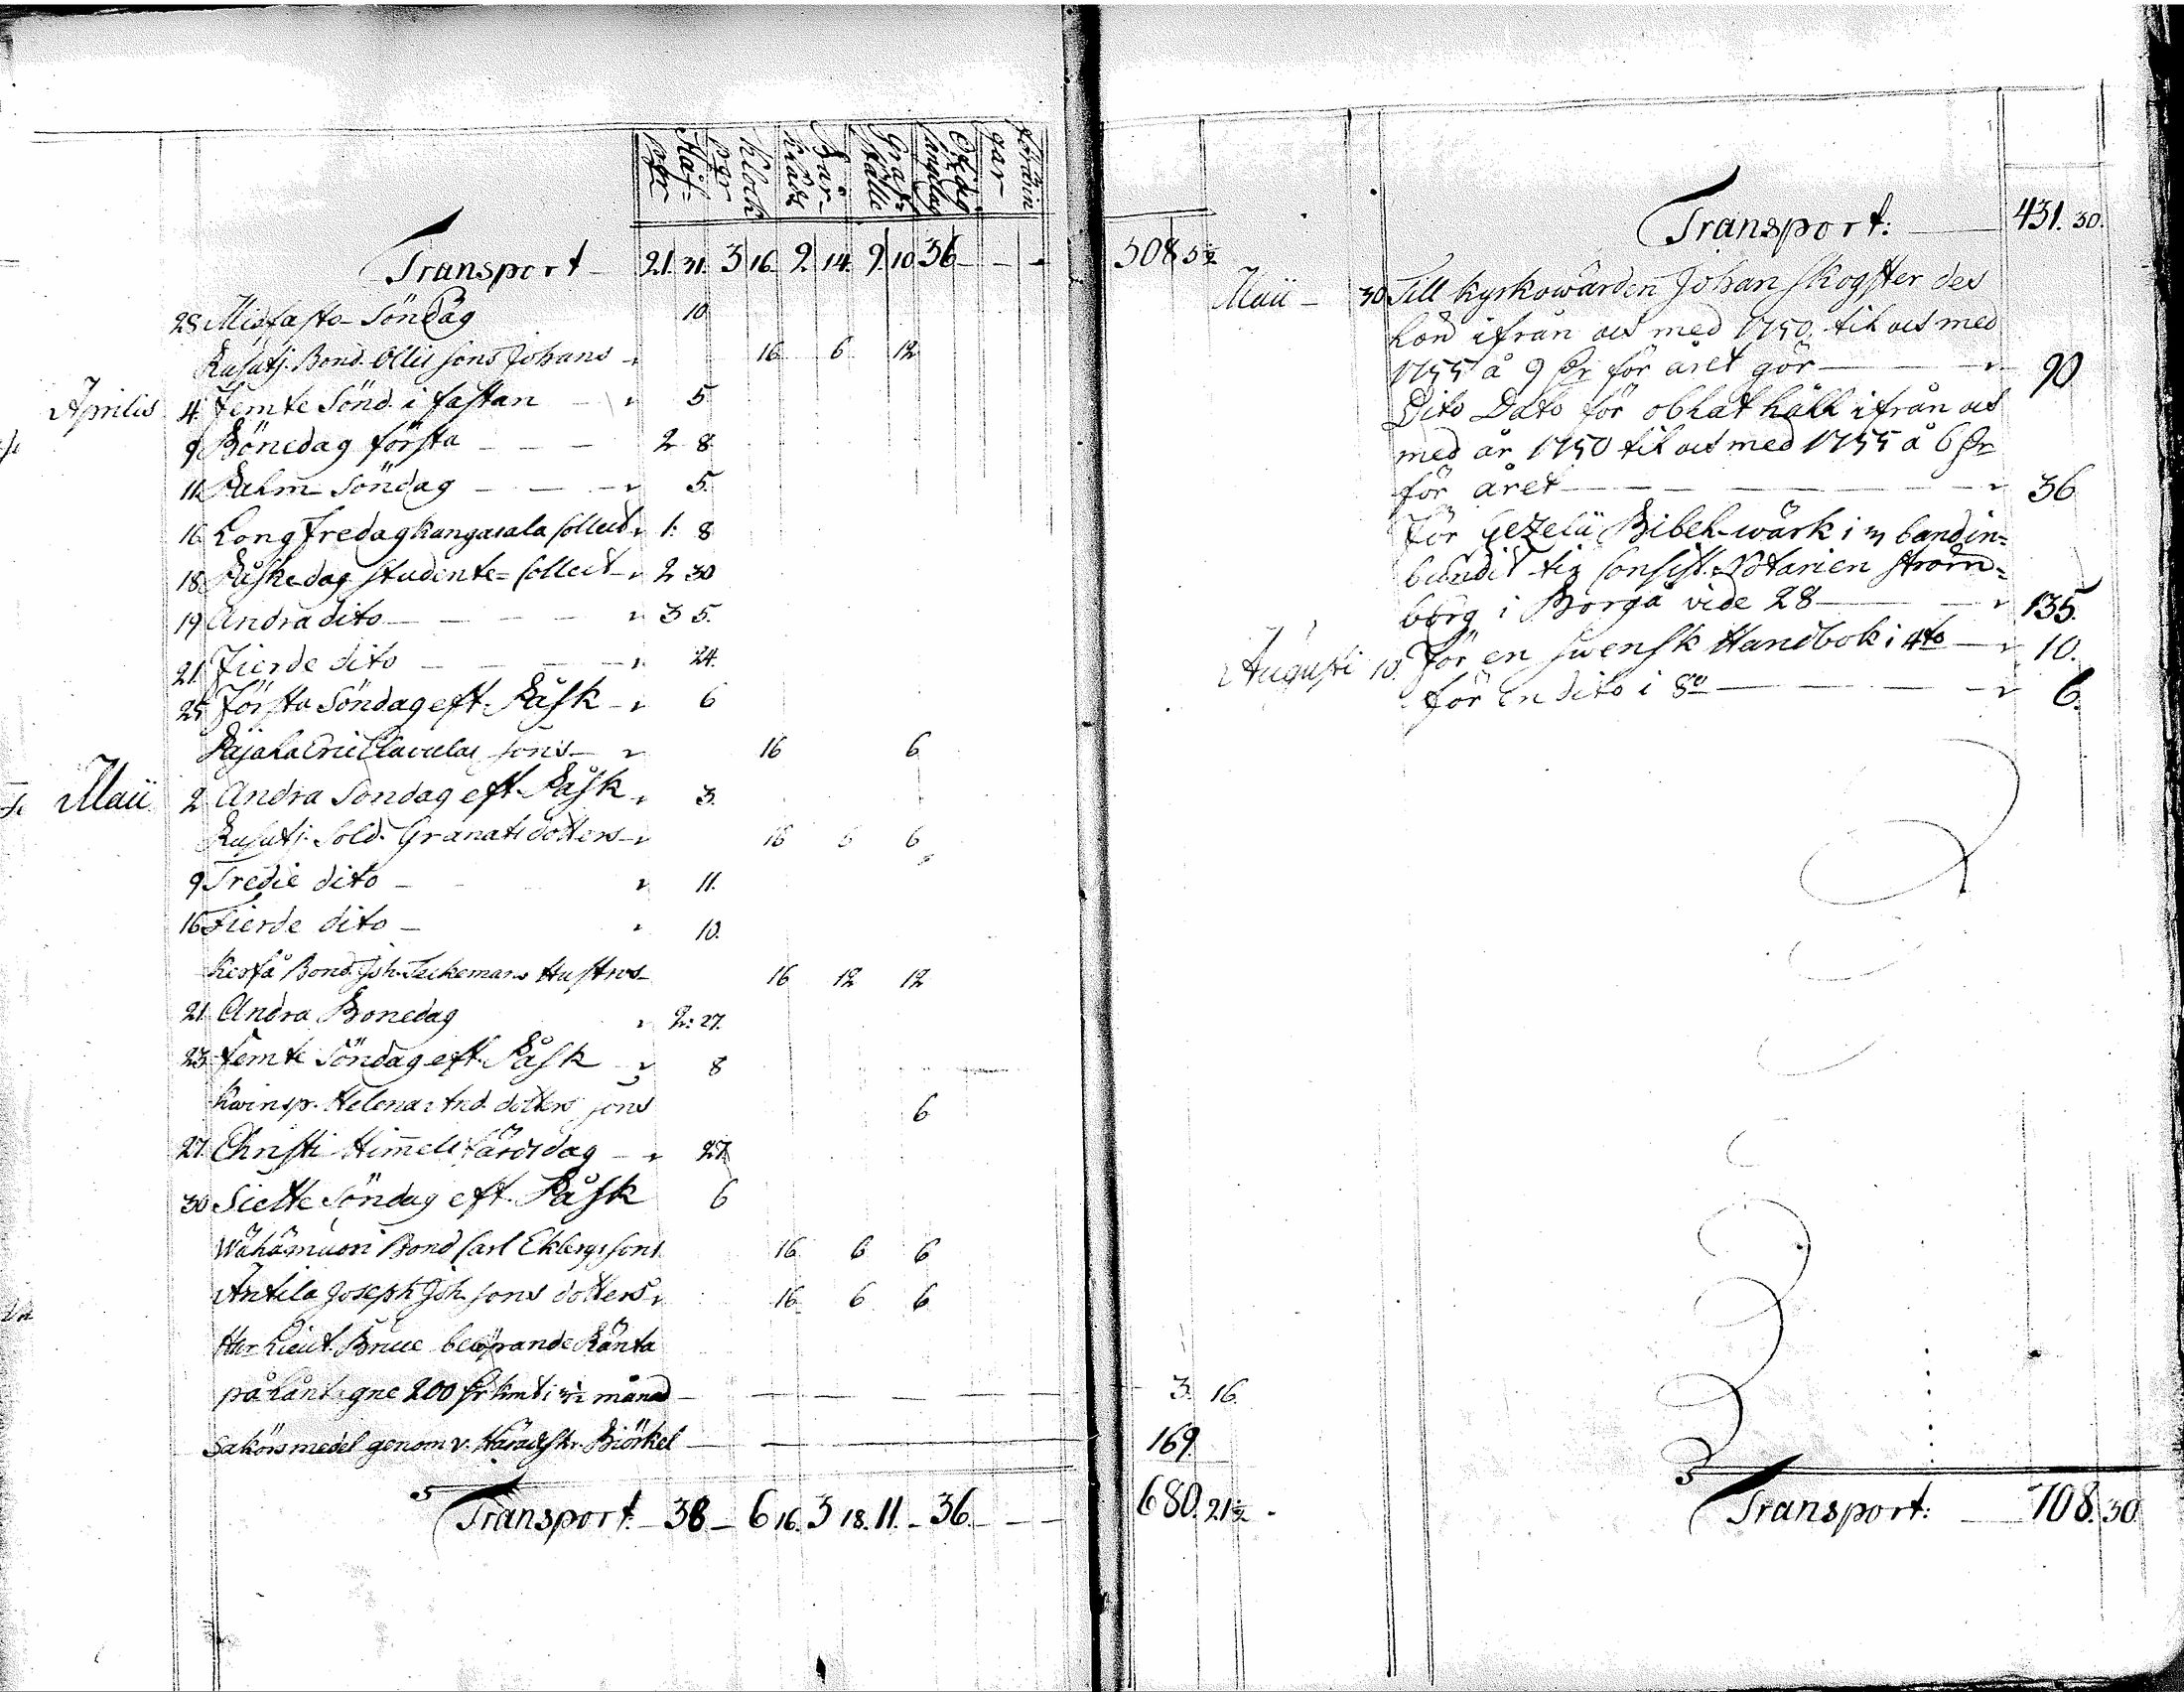 Håf=pgr Klockpgr Bårkläde Grafställe Ox dagar
Transport 21. 31. 3 16. 2. 14. 9. 10 36 — — 508 5½
28 Midfasto Söndag 10
Bond. Ollis sons Johans 16 6 12
Aprilis 4. Femte Sönd. i fastan 5
9 Bönedag första 2 8
11. Palm Söndag 5.
16 Longfredag Kangasala Collect 1: 8
18 Påskedag Studente= Collect 2 30
19 Andra dito 3 5.
21. Fierde dito 24.
25 Första Söndag eft. Påsk 6
Eric sons 16 6
Maii 2 Andra Söndag eft. Påsk 3.
Sold. Granats dotters 16 6 6
9 Tredie dito 11.
16 Fierde dito 10.
Bond. Joh. Hustrus 16 12 12
21. Andra Bönedag 2: 27.
23 Femte Söndag eft. Påsk 8
Kvinsp. Helena And. dotters sons 6
27 Christi Himelsfärdsdag 27
30 Siette Söndag eft. Påsk 6
Wähämuori Bond Carl Ekbergs sons 16 6 6
Antila Joseph Joh. sons dotters 16 6 6
Herr Lieut. Bruce Ränta
på 200 månad 3. 16.
Sakörsmedel genom v. Häradskr. Biörkel 169.
Transport. 38 — 6 16. 3 18. 11. — 36. — — 680. 21½
Transport: 431. 30.
Maii — 30 Till kyrkowärden Johan Skogster des
lön ifrån och med 1750. til och med
1755 å 9 för året gör 90
Dito Dato för oblat håll ifrån och
med år 1750 til och med 1755 å 6
för året 36
för Gezelii Bibel-wärk i 3 band in=
bundit til Consist. Notarien Ström=
borg i Borgå vide 28 135.
Augusti 10. För en swensk Handbok i 4to 10.
för en dito i 8vo 6.
Transport: 708. 30.